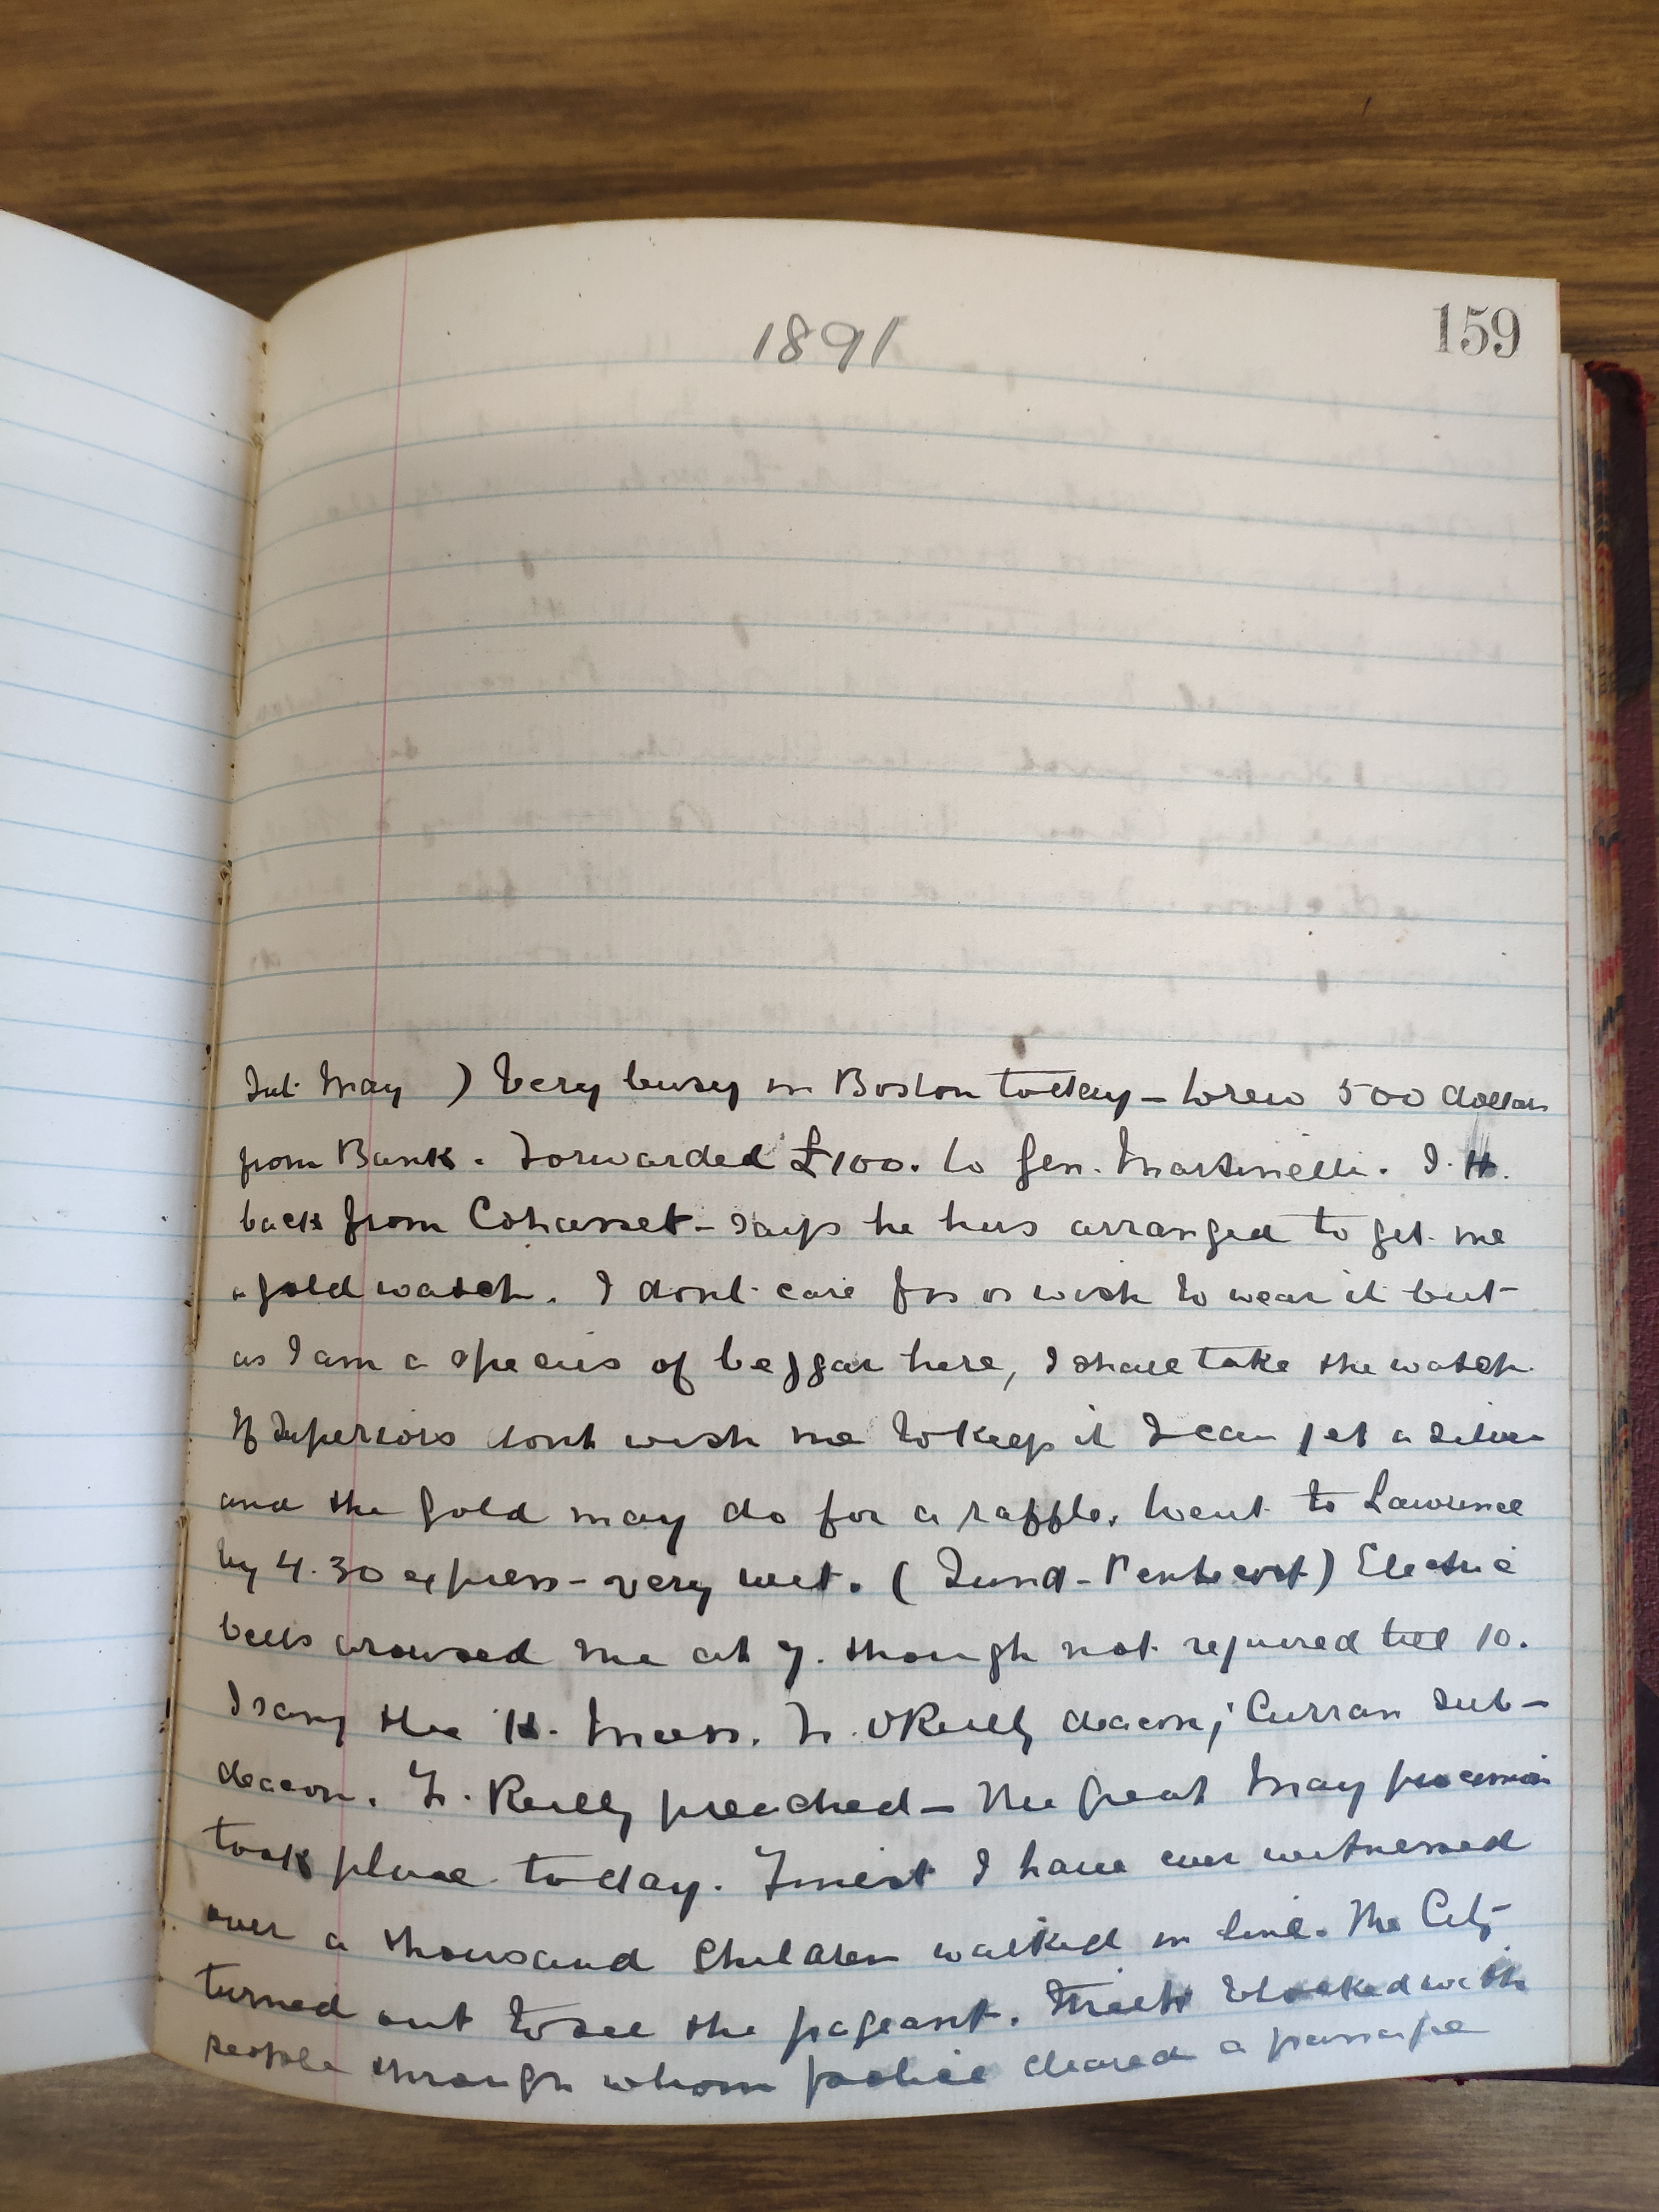 1891
159
Sat. May ) Very busy in Boston today – Drew 500 dollars
from Bank. Forwarded £100. to Gen. Martinelli. J. H.
back from Cohasset – says he has arranged to get me
a gold watch. I dont care for or wish to wear it but
as I am a species of beggar here, I shall take the watch
If Superiors dont wish me to keep it I can get a silver
and the gold may do for a raffle. Went to Lawrence
by 4.30 express – very wet. ( Sund – Pentecost ) Electric
bells aroused me at 7. though not required till 10.
I sang the H. Mass. Fr. O'Reilly deacon; Curran Sub –
deacon. Fr. Reilly preached – The great May procession
took place today. Finest I have ever witnessed
over a thousand children walked in line. The City
turned out to see the pageant. Streets blocked with
people through whom police cleared a passage